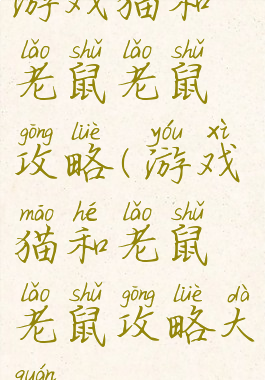 游戏猫和
lǎo shǔ lǎo shǔ
老鼠老鼠
gōng lüè yóu xì
攻略(游戏
māo hé lǎo shǔ
猫和老鼠
lǎo shǔ gōng lüè dà
老鼠攻略大
quán